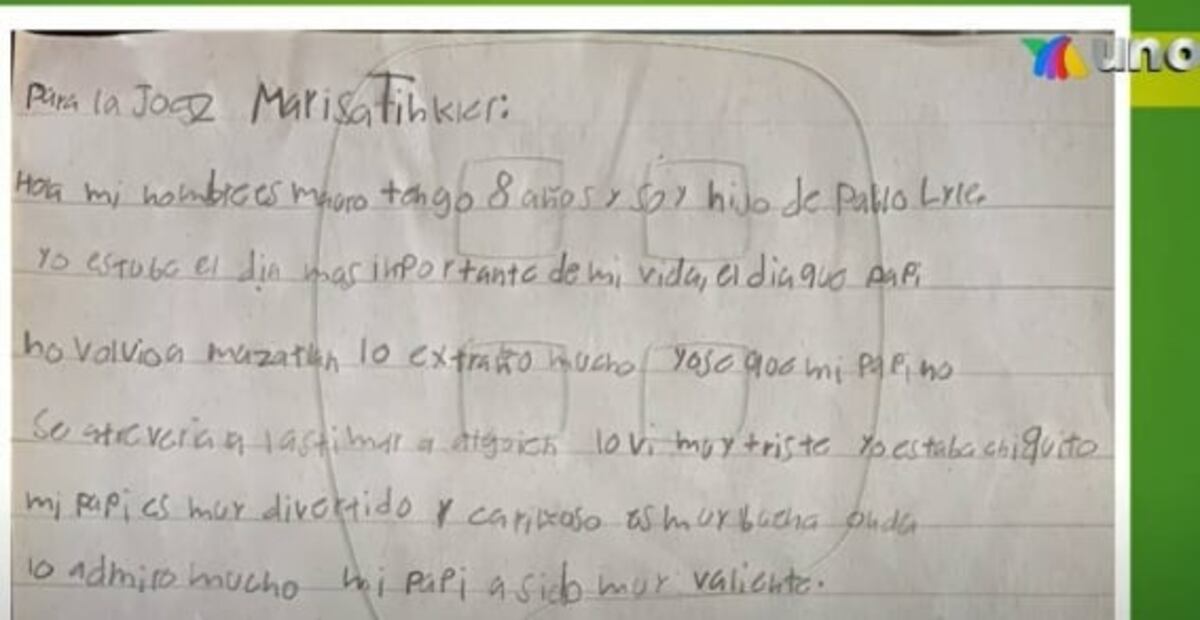 uno
Para la Joez Marisa Tihkier:
Hola mi nombre es mauro tengo 8 años y soy hijo de Pablo Lyle.
Yo estube el dia mas inportante de mi vida, el dia que papi
no volvio a mazatlan lo extraño mucho yo se que mi papi no
se atreveria a lastimar a alguien lo vi muy triste yo estaba chiquito
mi papi es muy divertido y cariñoso es muy buena onda
lo admiro mucho mi papi a sido muy valiente.